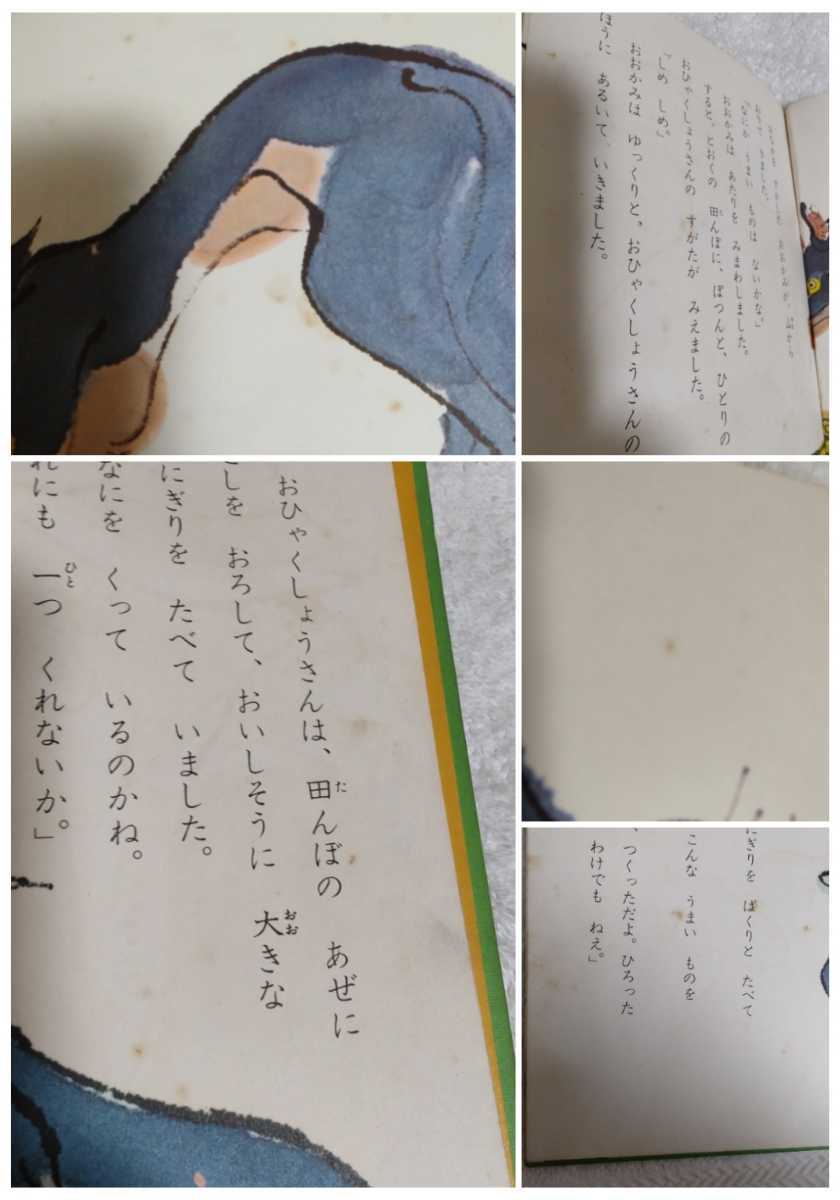 おなかを すかした おおかみが、山から
おりて きました。
「なにか うまい ものは ないかな。」
おおかみは あたりを みまわしました。
すると、とおくの 田んぼに、ぽつんと、ひとりの
おひゃくしょうさんの すがたが みえました。
「しめ しめ。」
おおかみは ゆっくりと、おひゃくしょうさんの
ほうに あるいて、いきました。
おひゃくしょうさんは、田んぼの あぜに
こしを おろして、おいしそうに 大きな
にぎりを たべて いました。
なにを くって いるのかね。
れにも 一つ くれないか。」
にぎりを ぱくりと たべて
こんな うまい ものを
、つくっただよ。ひろった
わけでも ねえ。」